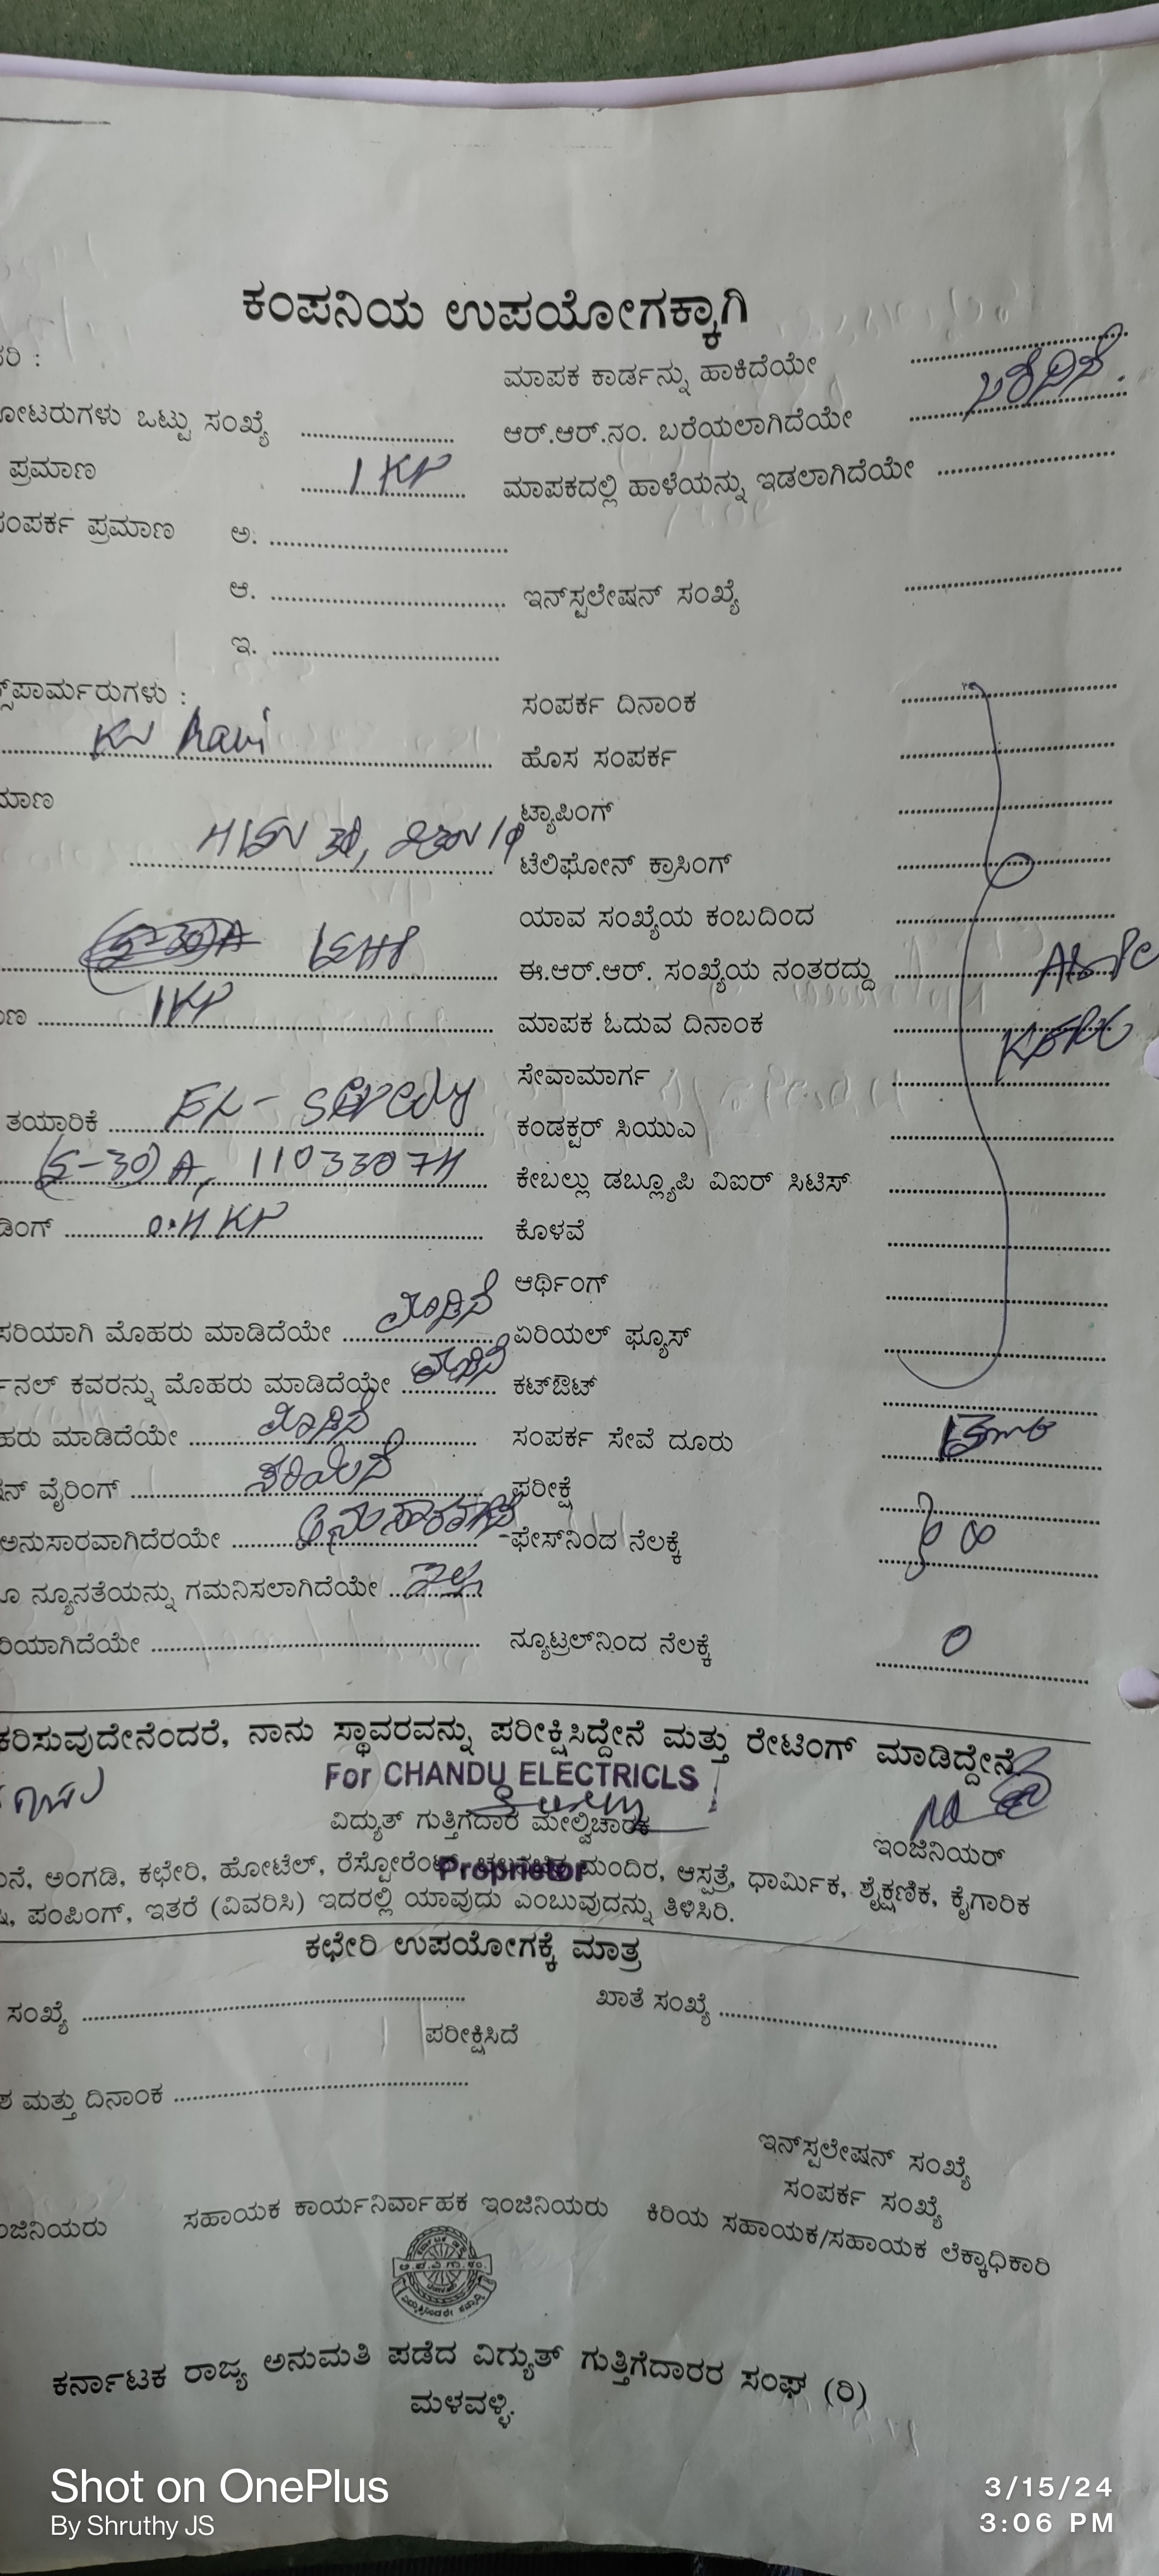 ಕಂಪನಿಯ ಉಪಯೋಗಕ್ಕಾಗಿ
ರಿ : ಮಾಪಕ ಕಾರ್ಡನ್ನು ಹಾಕಿದೆಯೇ
ೋಟರುಗಳು ಒಟ್ಟು ಸಂಖ್ಯೆ ಆರ್.ಆರ್.ನಂ. ಬರೆಯಲಾಗಿದೆಯೇ ಬರೆದಿದೆ.
ಪ್ರಮಾಣ 1 KW ಮಾಪಕದಲ್ಲಿ ಹಾಳೆಯನ್ನು ಇಡಲಾಗಿದೆಯೇ
ಸಂಪರ್ಕ ಪ್ರಮಾಣ ಅ.
ಆ. ಇನ್‌ಸ್ಟಲೇಷನ್ ಸಂಖ್ಯೆ
ಇ.
ಸ್‌ಪಾರ್ಮರುಗಳು : ಸಂಪರ್ಕ ದಿನಾಂಕ
KN Ravi ಹೊಸ ಸಂಪರ್ಕ
ಮಾಣ ಟ್ಯಾಪಿಂಗ್
ಟೆಲಿಫೋನ್ ಕ್ರಾಸಿಂಗ್
ಯಾವ ಸಂಖ್ಯೆಯ ಕಂಬದಿಂದ
ಈ.ಆರ್.ಆರ್. ಸಂಖ್ಯೆಯ ನಂತರದ್ದು
ಣ 1KW ಮಾಪಕ ಓದುವ ದಿನಾಂಕ
ಸೇವಾಮಾರ್ಗ
ತಯಾರಿಕೆ ಕಂಡಕ್ಟರ್ ಸಿಯುಎ
(5-30) A, 11033074 ಕೇಬಲ್ಲು ಡಬ್ಲ್ಯೂಪಿ ವಿಐರ್ ಸಿಟಿಸ್
ಡಿಂಗ್ 0.4 KW ಕೊಳವೆ
ಆರ್ಥಿಂಗ್
ಸರಿಯಾಗಿ ಮೊಹರು ಮಾಡಿದೆಯೇ ಮಾಡಿದೆ ಏರಿಯಲ್ ಫ್ಯೂಸ್
ನಲ್ ಕವರನ್ನು ಮೊಹರು ಮಾಡಿದೆಯೇ ಮಾಡಿದೆ ಕಟ್‌ಔಟ್
ಹರು ಮಾಡಿದೆಯೇ ಮಾಡಿದೆ ಸಂಪರ್ಕ ಸೇವೆ ದೂರು
ನ್ ವೈರಿಂಗ್ ಸರಿಯಿದೆ ಪರೀಕ್ಷೆ
ಅನುಸಾರವಾಗಿದೆರಯೇ ಫೇಸ್‌ನಿಂದ ನೆಲಕ್ಕೆ ∞
ೂ ನ್ಯೂನತೆಯನ್ನು ಗಮನಿಸಲಾಗಿದೆಯೇ ಇಲ್ಲ
ರಿಯಾಗಿದೆಯೇ ನ್ಯೂಟ್ರಲ್‌ನಿಂದ ನೆಲಕ್ಕೆ 0
ಕರಿಸುವುದೇನೆಂದರೆ, ನಾನು ಸ್ಥಾವರವನ್ನು ಪರೀಕ್ಷಿಸಿದ್ದೇನೆ ಮತ್ತು ರೇಟಿಂಗ್ ಮಾಡಿದ್ದೇನೆ
For CHANDU ELECTRICLS
ವಿದ್ಯುತ್ ಗುತ್ತಿಗೆದಾರ ಮೇಲ್ವಿಚಾರಕ ಇಂಜಿನಿಯರ್
Proprietor
ನೆ, ಅಂಗಡಿ, ಕಛೇರಿ, ಹೋಟೆಲ್, ರೆಸ್ಟೋರೆಂಟ್, ಮಂದಿರ, ಆಸ್ಪತ್ರೆ, ಧಾರ್ಮಿಕ, ಶೈಕ್ಷಣಿಕ, ಕೈಗಾರಿಕ
ಪಂಪಿಂಗ್, ಇತರೆ (ವಿವರಿಸಿ) ಇದರಲ್ಲಿ ಯಾವುದು ಎಂಬುವುದನ್ನು ತಿಳಿಸಿರಿ.
ಕಛೇರಿ ಉಪಯೋಗಕ್ಕೆ ಮಾತ್ರ
ಸಂಖ್ಯೆ ಖಾತೆ ಸಂಖ್ಯೆ
ಪರೀಕ್ಷಿಸಿದೆ
ಶ ಮತ್ತು ದಿನಾಂಕ
ಇನ್‌ಸ್ಟಲೇಷನ್ ಸಂಖ್ಯೆ
ಸಂಪರ್ಕ ಸಂಖ್ಯೆ
ಂಜಿನಿಯರು ಸಹಾಯಕ ಕಾರ್ಯನಿರ್ವಾಹಕ ಇಂಜಿನಿಯರು ಕಿರಿಯ ಸಹಾಯಕ/ಸಹಾಯಕ ಲೆಕ್ಕಾಧಿಕಾರಿ
ಕರ್ನಾಟಕ ರಾಜ್ಯ ಅನುಮತಿ ಪಡೆದ ವಿಗ್ಯುತ್ ಗುತ್ತಿಗೆದಾರರ ಸಂಘ (ರಿ)
ಮಳವಳ್ಳಿ.
Shot on OnePlus
By Shruthy JS
3/15/24
3:06 PM